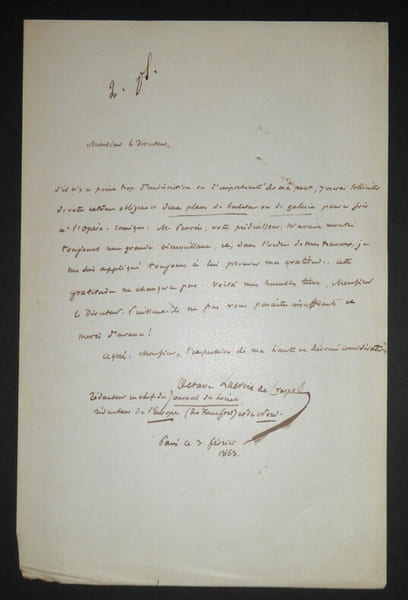 2. pl.
Monsieur le Directeur,
S'il n'y a point trop d'indiscrétion ou d'importunité de ma part, j'oserai solliciter
de votre extrême obligeance deux places de balcon ou de galerie pour ce soir
à l'Opéra-Comique. M. Perrin, votre prédécesseur, m'avait montré
toujours une grande bienveillance, et, dans l'ordre de mes travaux, je
me suis appliqué toujours à lui prouver ma gratitude. Cette
gratitude ne changera pas. Voilà mes humbles titres, Monsieur
le Directeur. Puissent-ils ne pas vous paraître insuffisants et
merci d'avance !
Agréez, Monsieur, l'expression de ma haute et dévouée considération,
Octave Lacroix de
rédacteur en chef du Journal du
rédacteur de l'Europe (de Francfort) et du Nord.
Paris ce 3 février
1863.